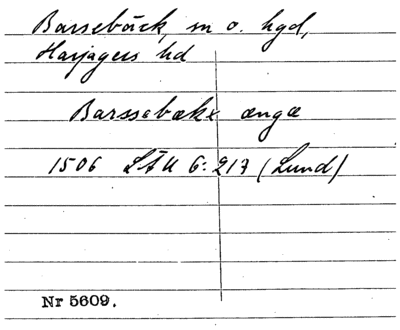 Barsebäck, sn o. hgd,
Harjagers hd
Barssebækx ængæ
1506 LÄU 6: 217 (Lund)
Nr 5609.